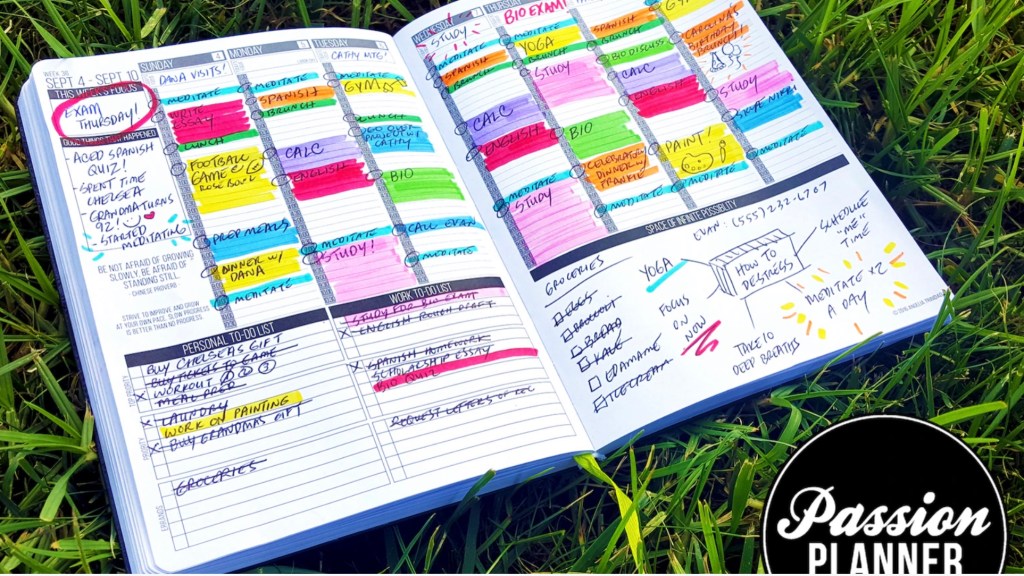 WEEK 36
SEPT 4 - SEPT 10
THIS WEEK'S FOCUS
EXAM
THURSDAY!
GOOD THINGS THAT HAPPENED
- ACED SPANISH
QUIZ!
- SPENT TIME
CHELSEA
- GRANDMA TURNS
92!
- STARTED
MEDITATING
BE NOT AFRAID OF GROWING
SLOWLY, BE AFRAID OF
STANDING STILL.
- CHINESE PROVERB
STRIVE TO IMPROVE AND GROW
AT YOUR OWN PACE. SLOW PROGRESS
IS BETTER THAN NO PROGRESS.
SUNDAY
DANA VISITS!
MEDITATE
ESSAY
LUNCH
FOOTBALL
GAME @
ROSE BOWL
PREP MEALS
DINNER W/
DANA
MEDITATE
MONDAY
MEDITATE
SPANISH
BRUNCH
CALC
ENGLISH
MEDITATE
STUDY!
TUESDAY
CATHY MTG!
MEDITATE
GYM
CATHY
BIO
CALL EVAN
MEDITATE
STUDY
MEDITATE
SPANISH
BRUNCH
CALC
ENGLISH
MEDITATE
STUDY
THURSDAY
BIO EXAM!
MEDITATE
YOGA
BRUNCH
STUDY
BIO
CELEBRATION
DINNER W/
MEDITATE
SPANISH
BIO DISCUSS
CALC
ENGLISH
PAINT!
MEDITATE
GYM
BIRTHDAY
BRUNCH!
STUDY
MEDITATE
PERSONAL TO-DO LIST
BUY CHELSEA'S GIFT
WORKOUT
MEAL PREP
LAUNDRY
WORK ON PAINTING
BUY GRANDMAS GIFT
GROCERIES
WORK TO-DO LIST
STUDY FOR BIO EXAM
ENGLISH ROUGH DRAFT
SPANISH HOMEWORK
SCHOLARSHIP ESSAY
BIO QUIZ
REQUEST LETTERS OF REC
SPACE OF INFINITE POSSIBILITY
GROCERIES
EGGS
BROCCOLI
BREAD
KALE
EDAMAME
ICECREAM
EVAN: (555) 232-6707
YOGA
FOCUS
ON
NOW
HOW TO
DESTRESS
SCHEDULE
"ME"
TIME
MEDITATE X2
A DAY
TAKE 10
DEEP BREATHS
Passion
PLANNER